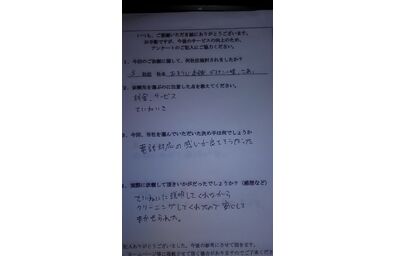 いつも、ご愛顧いただき誠にありがとうございます。
お手数ですが、今後のサービスの向上のため、
アンケートのご記入にご協力ください。
1、今回のご依頼に際して、何社位検討されましたか？
3 社位 社名
2、依頼先を選ぶのに注意した点を教えてください。
料金、サービス
ていねいさ
3、今回、当社を選んでいただいた決め手は何でしょうか
電話対応の感じが良てうだった
4、実際に依頼して頂きいかがだったでしょうか？（感想など）
ていねいに説明してくれながら
クリーニングしてくれたので安心して
まかせられた。
記入ありがとうございました。今後の参考にさせて頂きます。